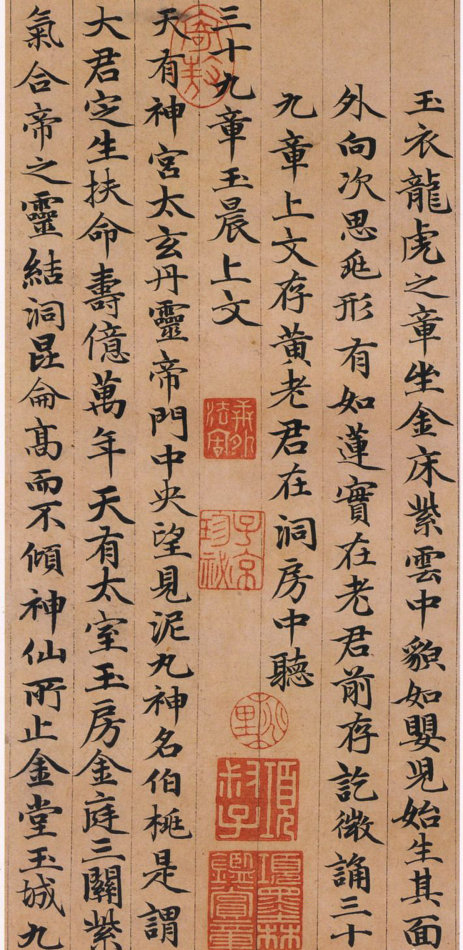 玉衣龍虎之章坐金床紫雲中貌如嬰兒始生其面
外向次思兆形有如蓮實在老君前存訖微誦三十
九章上文存黃老君在洞房中聽
三十九章玉晨上文
子京珍祕
項叔子
項墨林鑑賞章
天有神宮太玄丹靈帝門中央望見泥丸神名伯桃是謂
大君定生扶命壽億萬年天有太室玉房金庭三關紫
氣合帝之靈結洞昆侖高而不傾神仙所止金堂玉城九